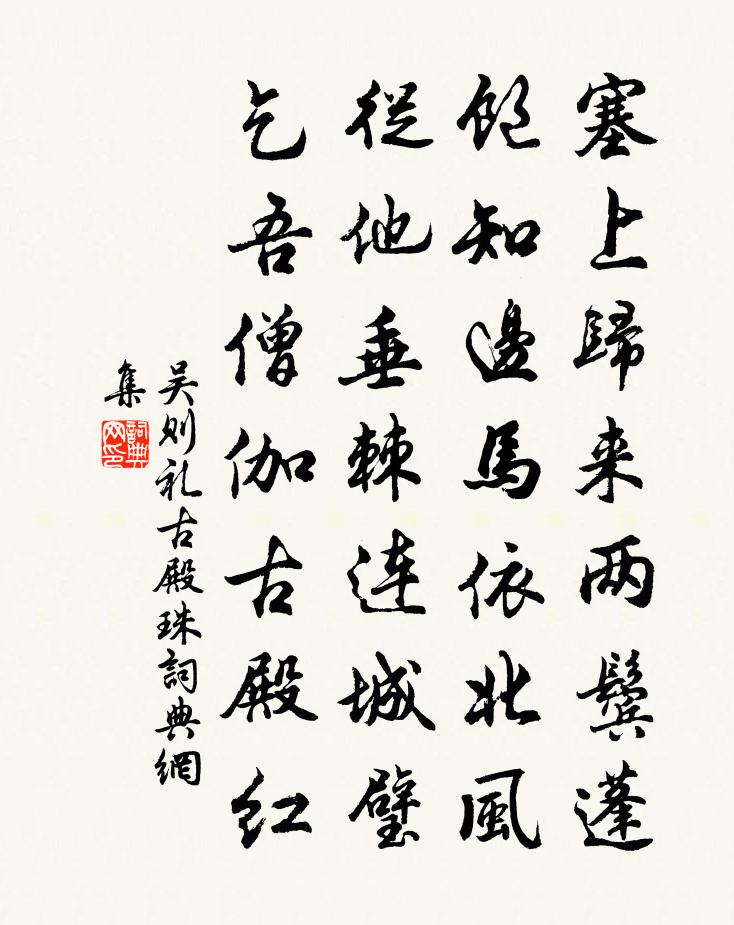 塞上歸来两鬓蓬
飽知邊馬依北風
從他垂棘連城璧
乞吾僧伽古殿紅
吴则礼古殿珠詞典網
集
詞典网印